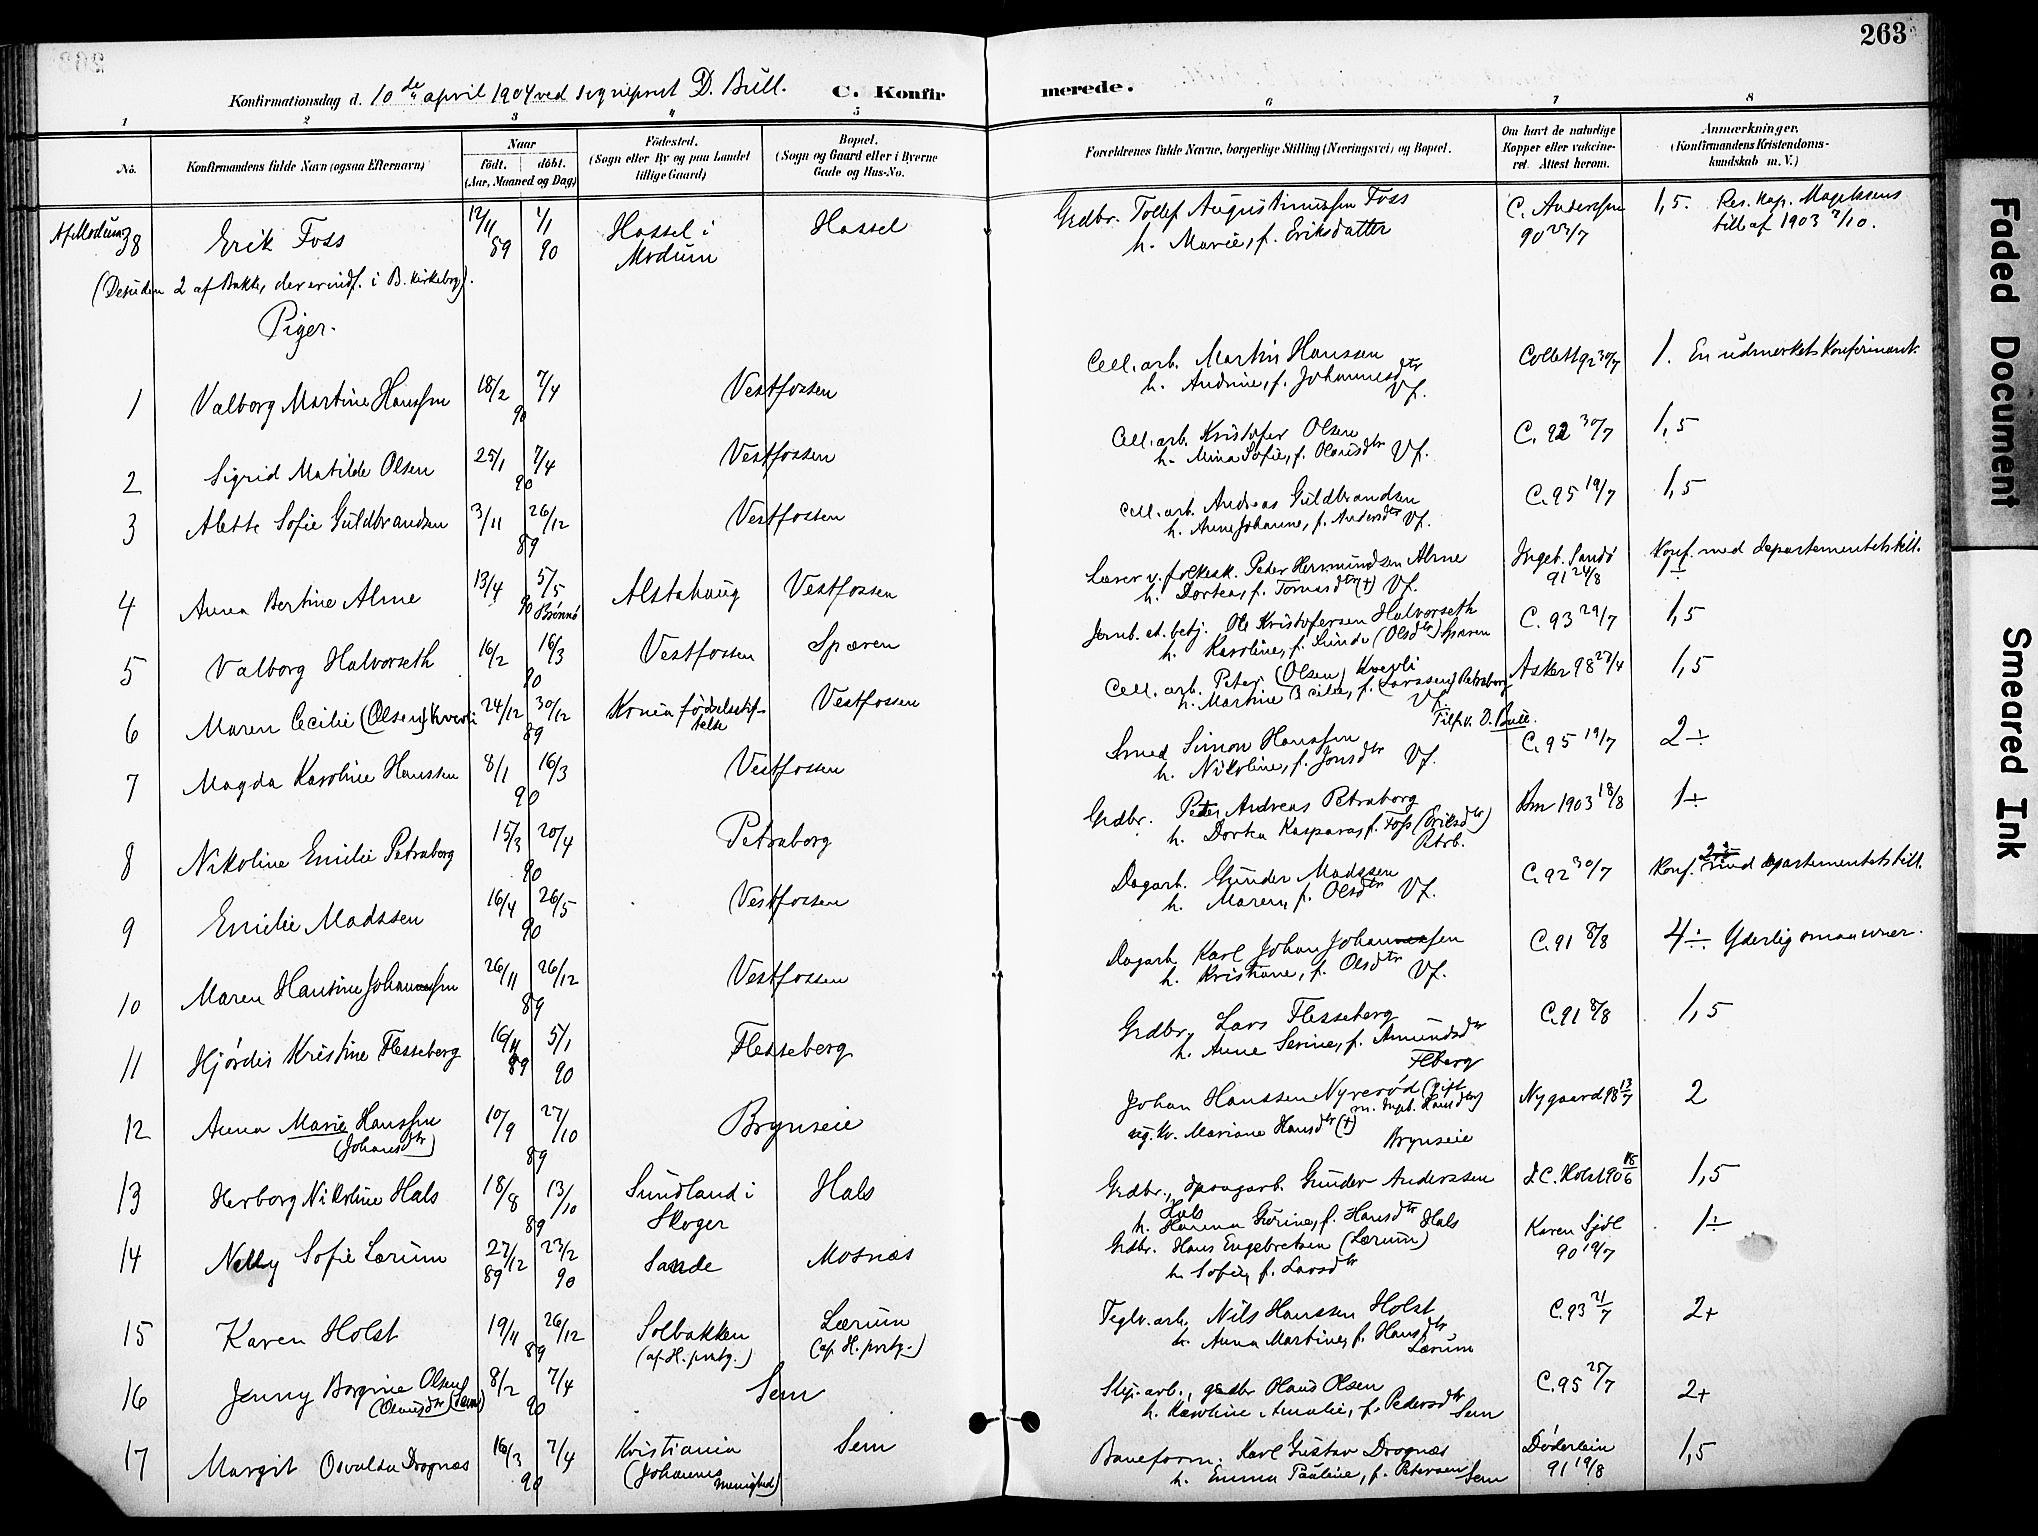 263
Konfirmationsdag d. 10de april 1904 ved sogneprest D. Bull. C. Konfirmerede.
1 2 3 4 5 6 7 8
No. Konfirmandens fulde Navn (ogsaa Efternavn) Naar født. døbt. (Aar, Maaned og Dag) Fødested. (Sogn eller By og paa Landet tillige Gaard) Bopæl. (Sogn og Gaard eller i Byerne Gade og Hus-No. Forældrenes fulde Navne, borgerlige Stilling (Næringsvei) og Bopæl. Om havt de naturlige Kopper eller vakcineret. Attest herom. Anmærkninger. (Konfirmandens Kristendomskundskab m. V.)
Af Modum 38 Erik Foss 12/11 89 1/1 90 Hassel i Modum Hassel Grdbr. Tollef Augustinussen Foss h. Marie, f. Eriksdatter C. Anderssen 90 23/7 1,5. Res. kap. Magelssens till af 1903 7/10.
(Desuden 2 af Bakke, der er indf. i B. kirkebog).
Piger.
1 Valborg Martine Hanssen 18/2 7/4 90 Vestfossen Cell. arb. Martin Hanssen h. Andrine, f. Johannesdtr Vf. Collett 92 30/7 1. En udmerket konfirmant.
2 Sigrid Matilde Olsen 25/1 7/4 90 Vestfossen Cell. arb. Kristofer Olsen h. Mina Sofie, f. Olausdtr Vf. C. 92 30/7 1,5
3 Alette Sofie Guldbrandsen 3/11 26/12 89 Vestfossen Cell. arb. Andreas Guldbrandsen h. Anne Johanne, f. Andersdtr Vf. C. 95 19/7 1,5
4 Anna Bertine Alme 13/4 5/5 90 Brønnø Alstahaug Vestfossen Lærer v. folkesk. Peter Hermundsen Alme h. Dortea, f. Tomasdtr (+) Vf. Ingeb. Sandø 91 24/8 Konf. med departementets till. 1÷
5 Valborg Halvorseth 16/2 16/3 90 Vestfossen Spæren Jernb. et. betj. Ole Kristofersen Halvorseth h. Karoline, f. Lunde (Olsdtr) Spæren C. 93 29/7 1,5
6 Maren Cecilie (Olsen) Kverli 24/12 30/12 89 Kr.nia fødselsstiftelse Vestfossen Cell. arb. Peter (Olsen) Kverli h. Martine Bcilie, f. (Larssen) Petraborg Vf. Tilf. v. D. Bull. Asker 98 27/4 1,5
7 Magda Karoline Hanssen 8/1 16/3 90 Vestfossen Smed Simon Hanssen h. Nikoline, f. Jonsdtr Vf. C. 95 19/7 2÷
8 Nikoline Emilie Petraborg 15/3 20/4 90 Petraborg Grdbr. Peter Andreas Petraborg h. Dortea Kaspara, f. Foss (Eriksdtr) Ptrb. 1903 18/8 1÷
9 Emilie Madssen 16/4 26/5 90 Vestfossen Dagarb. Gunder Madssen h. Maren, f. Olsdtr Vf. C. 92 30/7 Konf. med departementets till.
10 Maren Hantine Johannesen 26/11 26/12 89 Vestfossen Dagarb. Karl Johan Johannesen h. Kristiane, f. Olsdtr Vf. C. 91 8/8 4÷ Yderlig
11 Hjørdis Kristine Flesseberg 16/11 89 5/1 90 Flesseberg Grdbr. Lars Flesseberg h. Anne Serine, f. Amundsdtr Flberg C. 91 8/8 1,5
12 Anna Marie Hanssen (Johansdtr) 10/9 27/10 89 Brynseie Johan Hanssen Nyrerød (gift m. Ingb. Hansdtr) ug. kv. Mariane Hansdtr (+) Brynseie Nygaard 98 13/7 2
13 Herborg Nikoline Hals 18/8 13/10 89 Sundland i Skoger Hals Grdbr., Gunder Anderssen Hals h. Hanna Gurine, f. Hansdtr Hals J. C. Holst 90 18/6 1,5
14 Nelly Sofie Lærum 27/12 89 23/2 90 Sande Mosnæs Grdbr. Hans Engebretsen (Lærum) h. Sofie, f. Larsdtr Karen Sjøl 90 19/7 1÷
15 Karen Holst 19/11 26/12 89 Solbakken (af H. prstg.) Lærum (af H. prstg.) Teglv. arb. Nils Hanssen Holst h. Anna Martine, f. Hansdtr Lærum C. 93 21/7 2+
16 Jenny Borgine Olsen (Olausdtr) (Sem) 8/2 7/4 90 Sem Slip. arb., gaardbr Olaus Olsen h. Karoline Amalie, f. Pedersdtr Sem C. 95 25/7 2+
17 Margit Osvalda Dragnæs 16/3 7/4 90 Kristiania (Johannes menighed) Sem Baneform. Karl Gustav Dragnæs h. Emma Pauline, f. Petersen Sem Døderlein 91 19/8 1,5
Faded Document
Smeared Ink